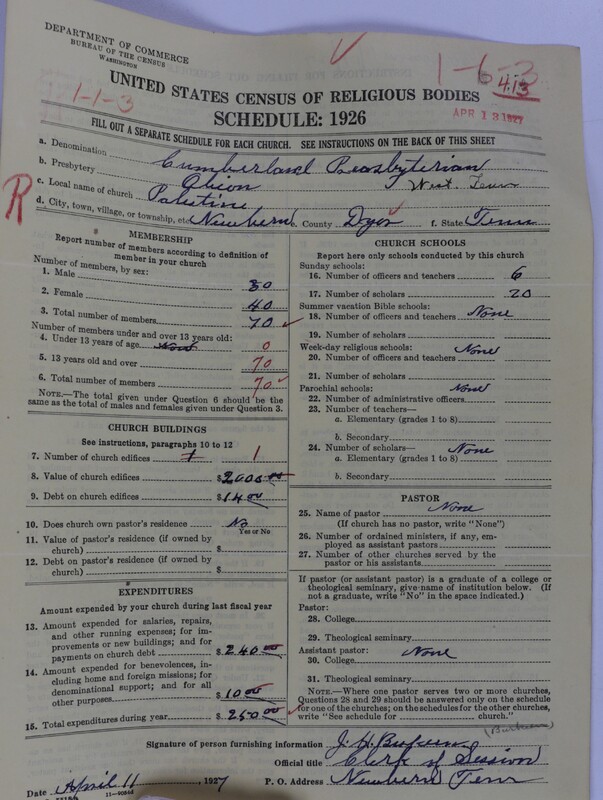 DEPARTMENT OF COMMERCE
BUREAU OF THE CENSUS
WASHINGTON
1-1-3
1-6-3
413
APR 13 1927
UNITED STATES CENSUS OF RELIGIOUS BODIES
SCHEDULE: 1926
FILL OUT A SEPARATE SCHEDULE FOR EACH CHURCH. SEE INSTRUCTIONS ON THE BACK OF THIS SHEET
a. Denomination Cumberland Presbyterian
b. Presbytery Obion West. Tenn
c. Local name of church Palestine
R
d. City, town, village, or township, etc. Newbern e. County Dyer f. State Tenn
MEMBERSHIP
Report number of members according to definition of
member in your church
Number of members, by sex:
1. Male 30
2. Female 40
3. Total number of members 70
Number of members under and over 13 years old:
4. Under 13 years of age None 0
5. 13 years old and over 70
6. Total number of members 70
NOTE.—The total given under Question 6 should be the
same as the total of males and females given under Question 3.
CHURCH BUILDINGS
See instructions, paragraphs 10 to 12
7. Number of church edifices 1 1
8. Value of church edifices $2000.00
9. Debt on church edifices $14.00
10. Does church own pastor's residence No
Yes or No
11. Value of pastor's residence (if owned by
church) $
12. Debt on pastor's residence (if owned by
church) $
EXPENDITURES
Amount expended by your church during last fiscal year
13. Amount expended for salaries, repairs,
and other running expenses; for im-
provements or new buildings; and for
payments on church debt $240.00
14. Amount expended for benevolences, in-
cluding home and foreign missions; for
denominational support; and for all
other purposes $10.00
15. Total expenditures during year $250.00
CHURCH SCHOOLS
Report here only schools conducted by this church
Sunday schools:
16. Number of officers and teachers 6
17. Number of scholars 20
Summer vacation Bible schools:
18. Number of officers and teachers None
19. Number of scholars
Week-day religious schools:
20. Number of officers and teachers None
21. Number of scholars
Parochial schools:
22. Number of administrative officers None
23. Number of teachers—
a. Elementary (grades 1 to 8)
b. Secondary
24. Number of scholars— None
a. Elementary (grades 1 to 8)
b. Secondary
PASTOR
25. Name of pastor None
(If church has no pastor, write "None")
26. Number of ordained ministers, if any, em-
ployed as assistant pastors
27. Number of other churches served by the
pastor or his assistants
If pastor (or assistant pastor) is a graduate of a college or
theological seminary, give name of institution below. (If
not a graduate, write "No" in the space indicated.)
Pastor:
28. College
29. Theological seminary
Assistant pastor: None
30. College
31. Theological seminary
NOTE.—Where one pastor serves two or more churches,
Questions 28 and 29 should be answered only on the schedule
for one of the churches; on the schedules for the other churches,
write "See schedule for church."
Signature of person furnishing information J. H.
Official title Clerk of Session
Date April 11, 1927 P. O. Address Newbern Tenn